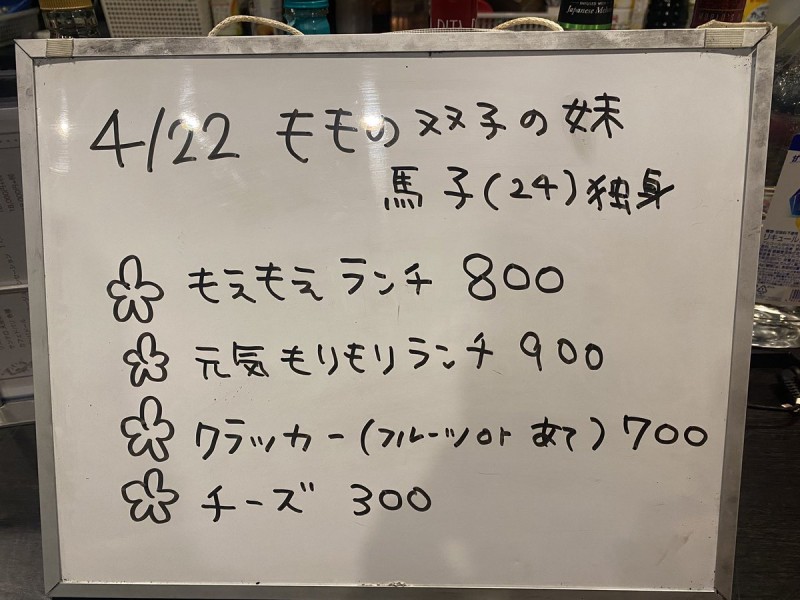 DITA
Japanese
4/22 ももの双子の妹
馬子(24)独身
もえもえランチ 800
元気もりもりランチ 900
クラッカー(フルーツor あて) 700
チーズ 300
リキュール